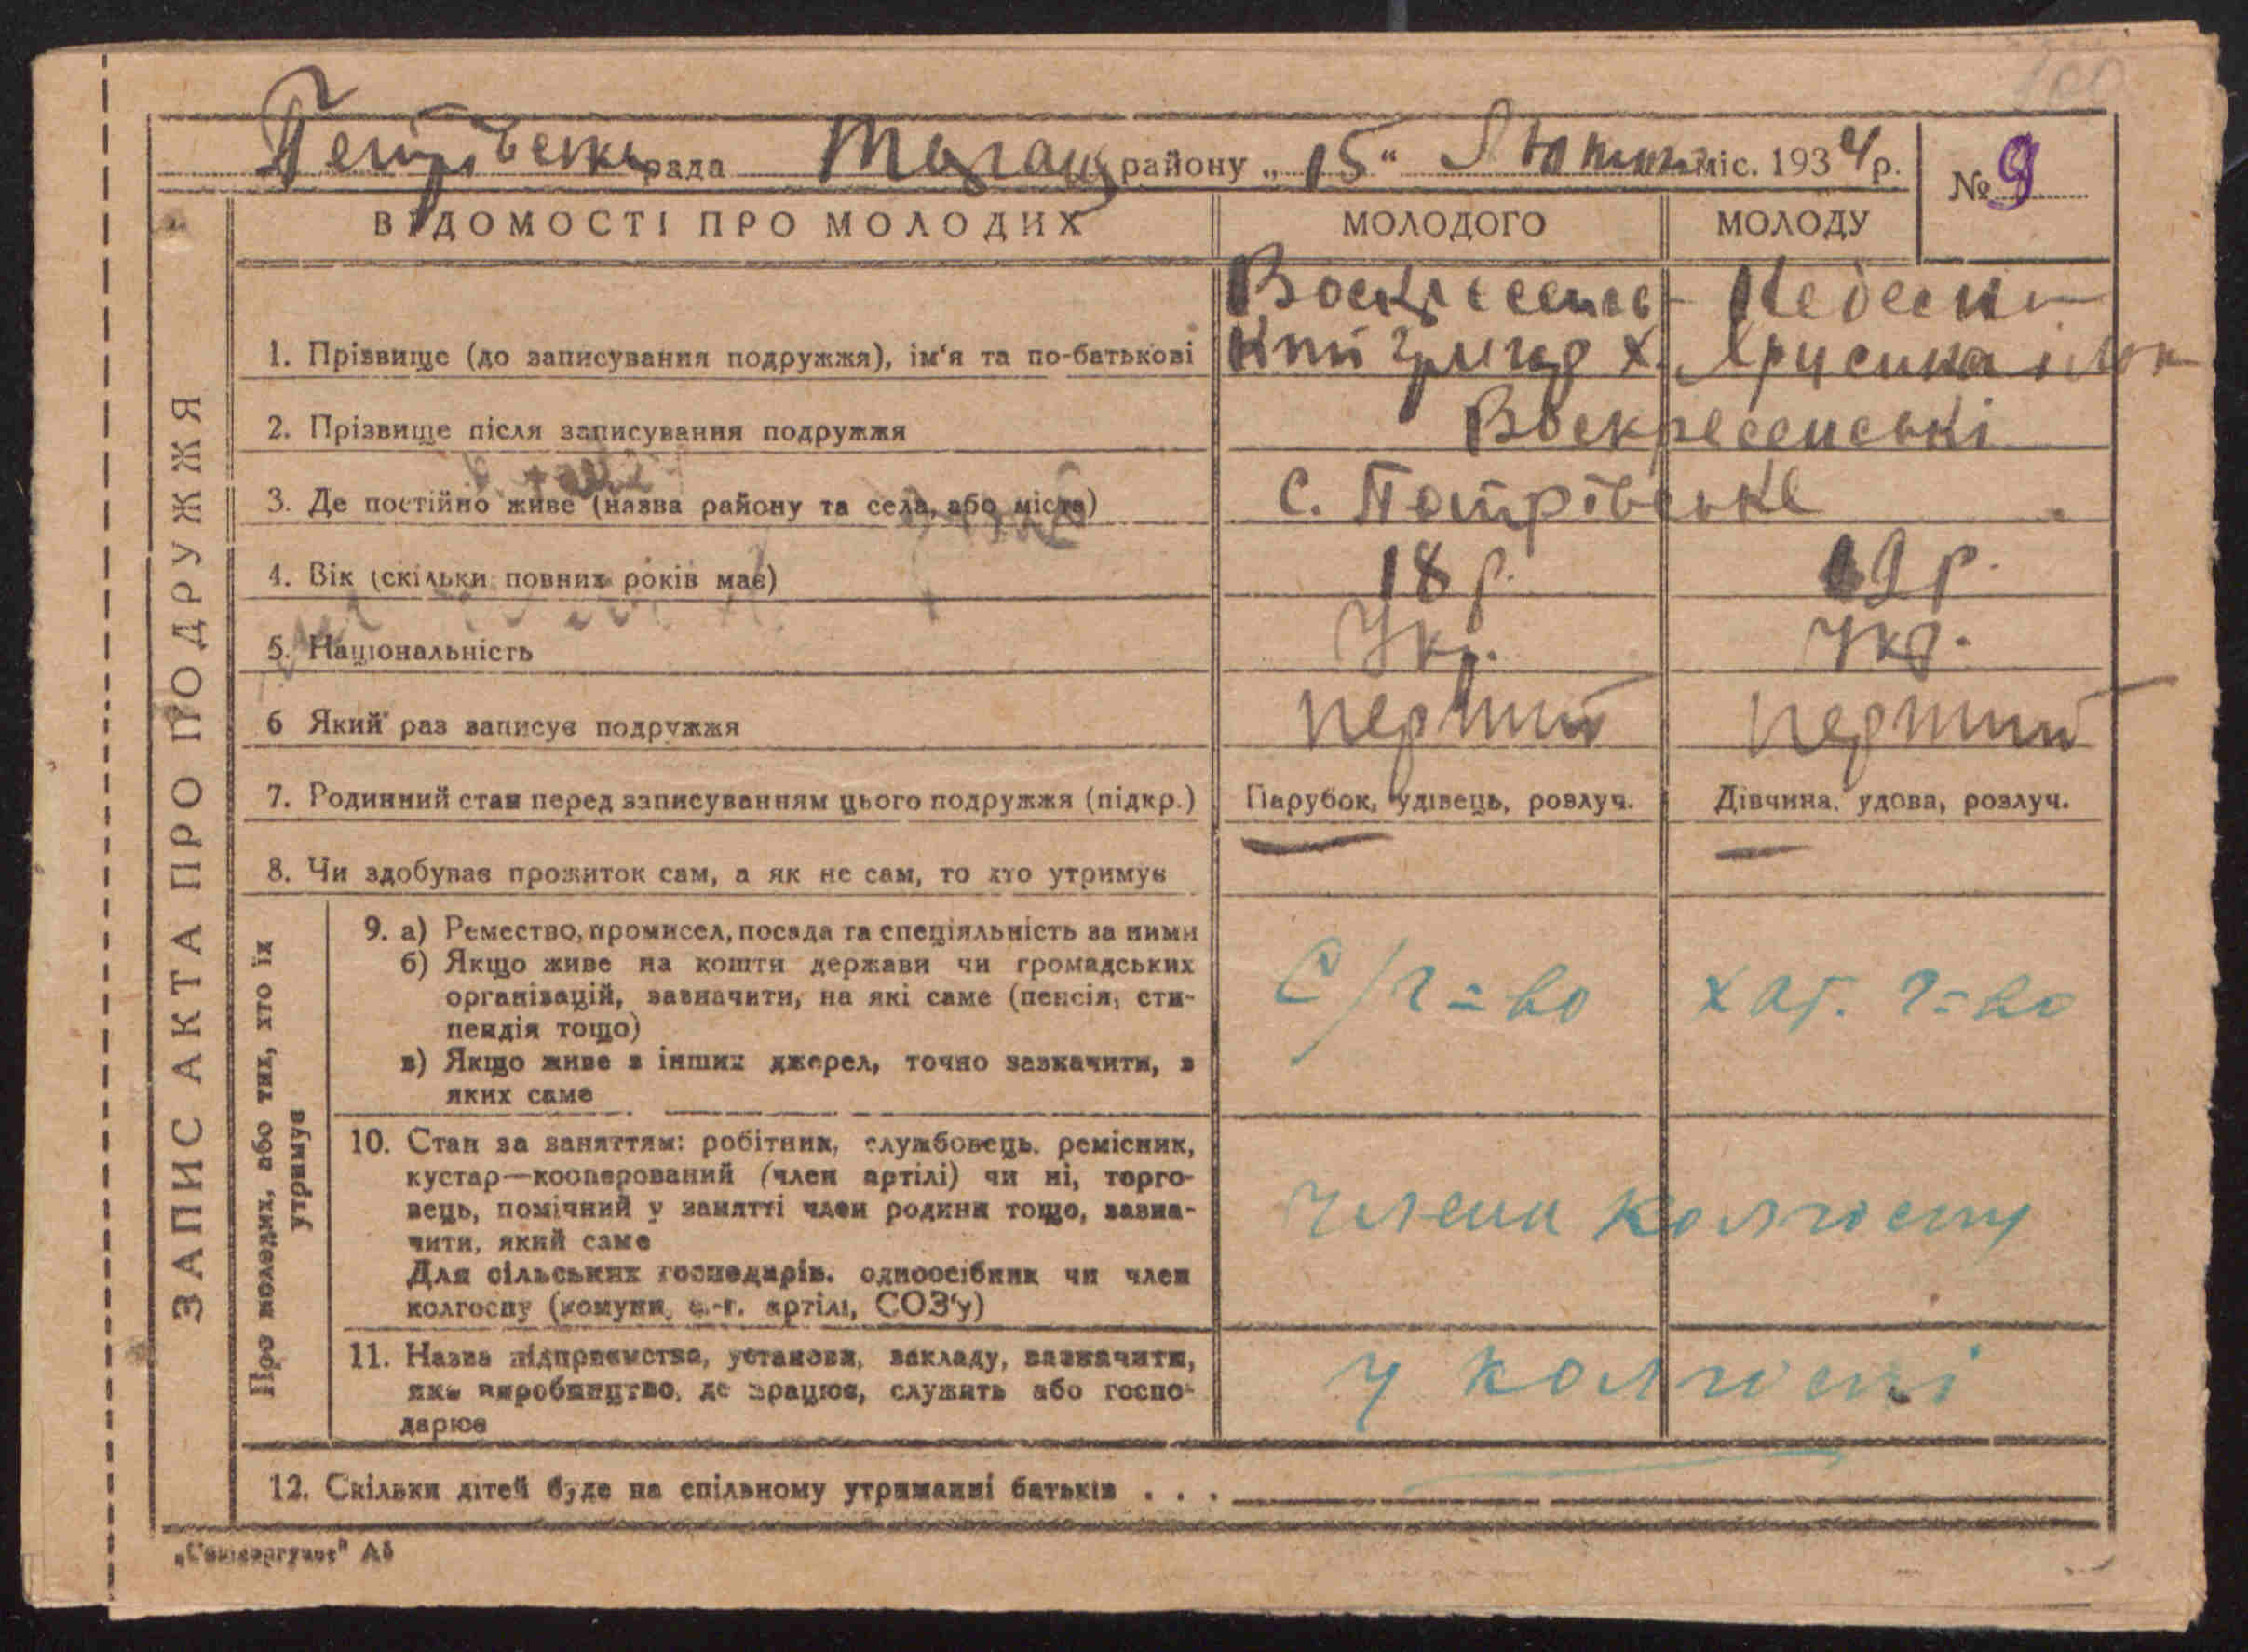 Петрівська рада район̆у „15“ Лютого міс. 1934 р.
№ 9
ВІДОМОСТІ ПРО МОЛОДИХ
МОЛОДОГО
МОЛОДУ
ЗАПИС АКТА ПРО ПОДРУЖЖЯ
1. Прізвище (до записування подружжя), ім'я та по-батькові
Воскресенсь-
кий Григор Х.
2. Прізвище після записування подружжя
Воскресенські
3. Де постійно живе (назва району та села, або міста)
с. Петрівське
4. Вік (скільки повних років має)
18 р.
19 р.
5. Національність
Укр.
Укр.
6 Який раз записує подружжя
перший
перший
7. Родинний стан перед записуванням цього подружжя (підкр.)
Парубок, удівець, розлуч.
Дівчина, удова, розлуч.
8. Чи здобував прожиток сам, а як не сам, то хто утримує
Про молодих, або тих, хто їх
утримує
9. а) Ремество, промисел, посада та спеціяльність за ними
б) Якщо живе на кошти держави чи громадських
організацій, зазначити, на які саме (пенсія, сти-
пендія тощо)
в) Якщо живе з інших джерел, точно зазначити, з
яких саме
С/г=во
хат. г=во
10. Стан за заняттям: робітник, службовець. ремісник,
кустар—кооперований (член артілі) чи ні, торго-
вець, помічний у занятті член родини тощо, зазна-
чити, який саме
Для сільських господарів. одноосібник чи член
колгоспу (комуни, с.-г. артілі, СОЗ'у)
члени колгоспу
11. Назва підприємства, установи, закладу, зазначити,
яке виробництво, де працює, служить або госпо-
дарює
у колгоспі
12. Скільки дітей буде на спільному утриманні батьків . . .